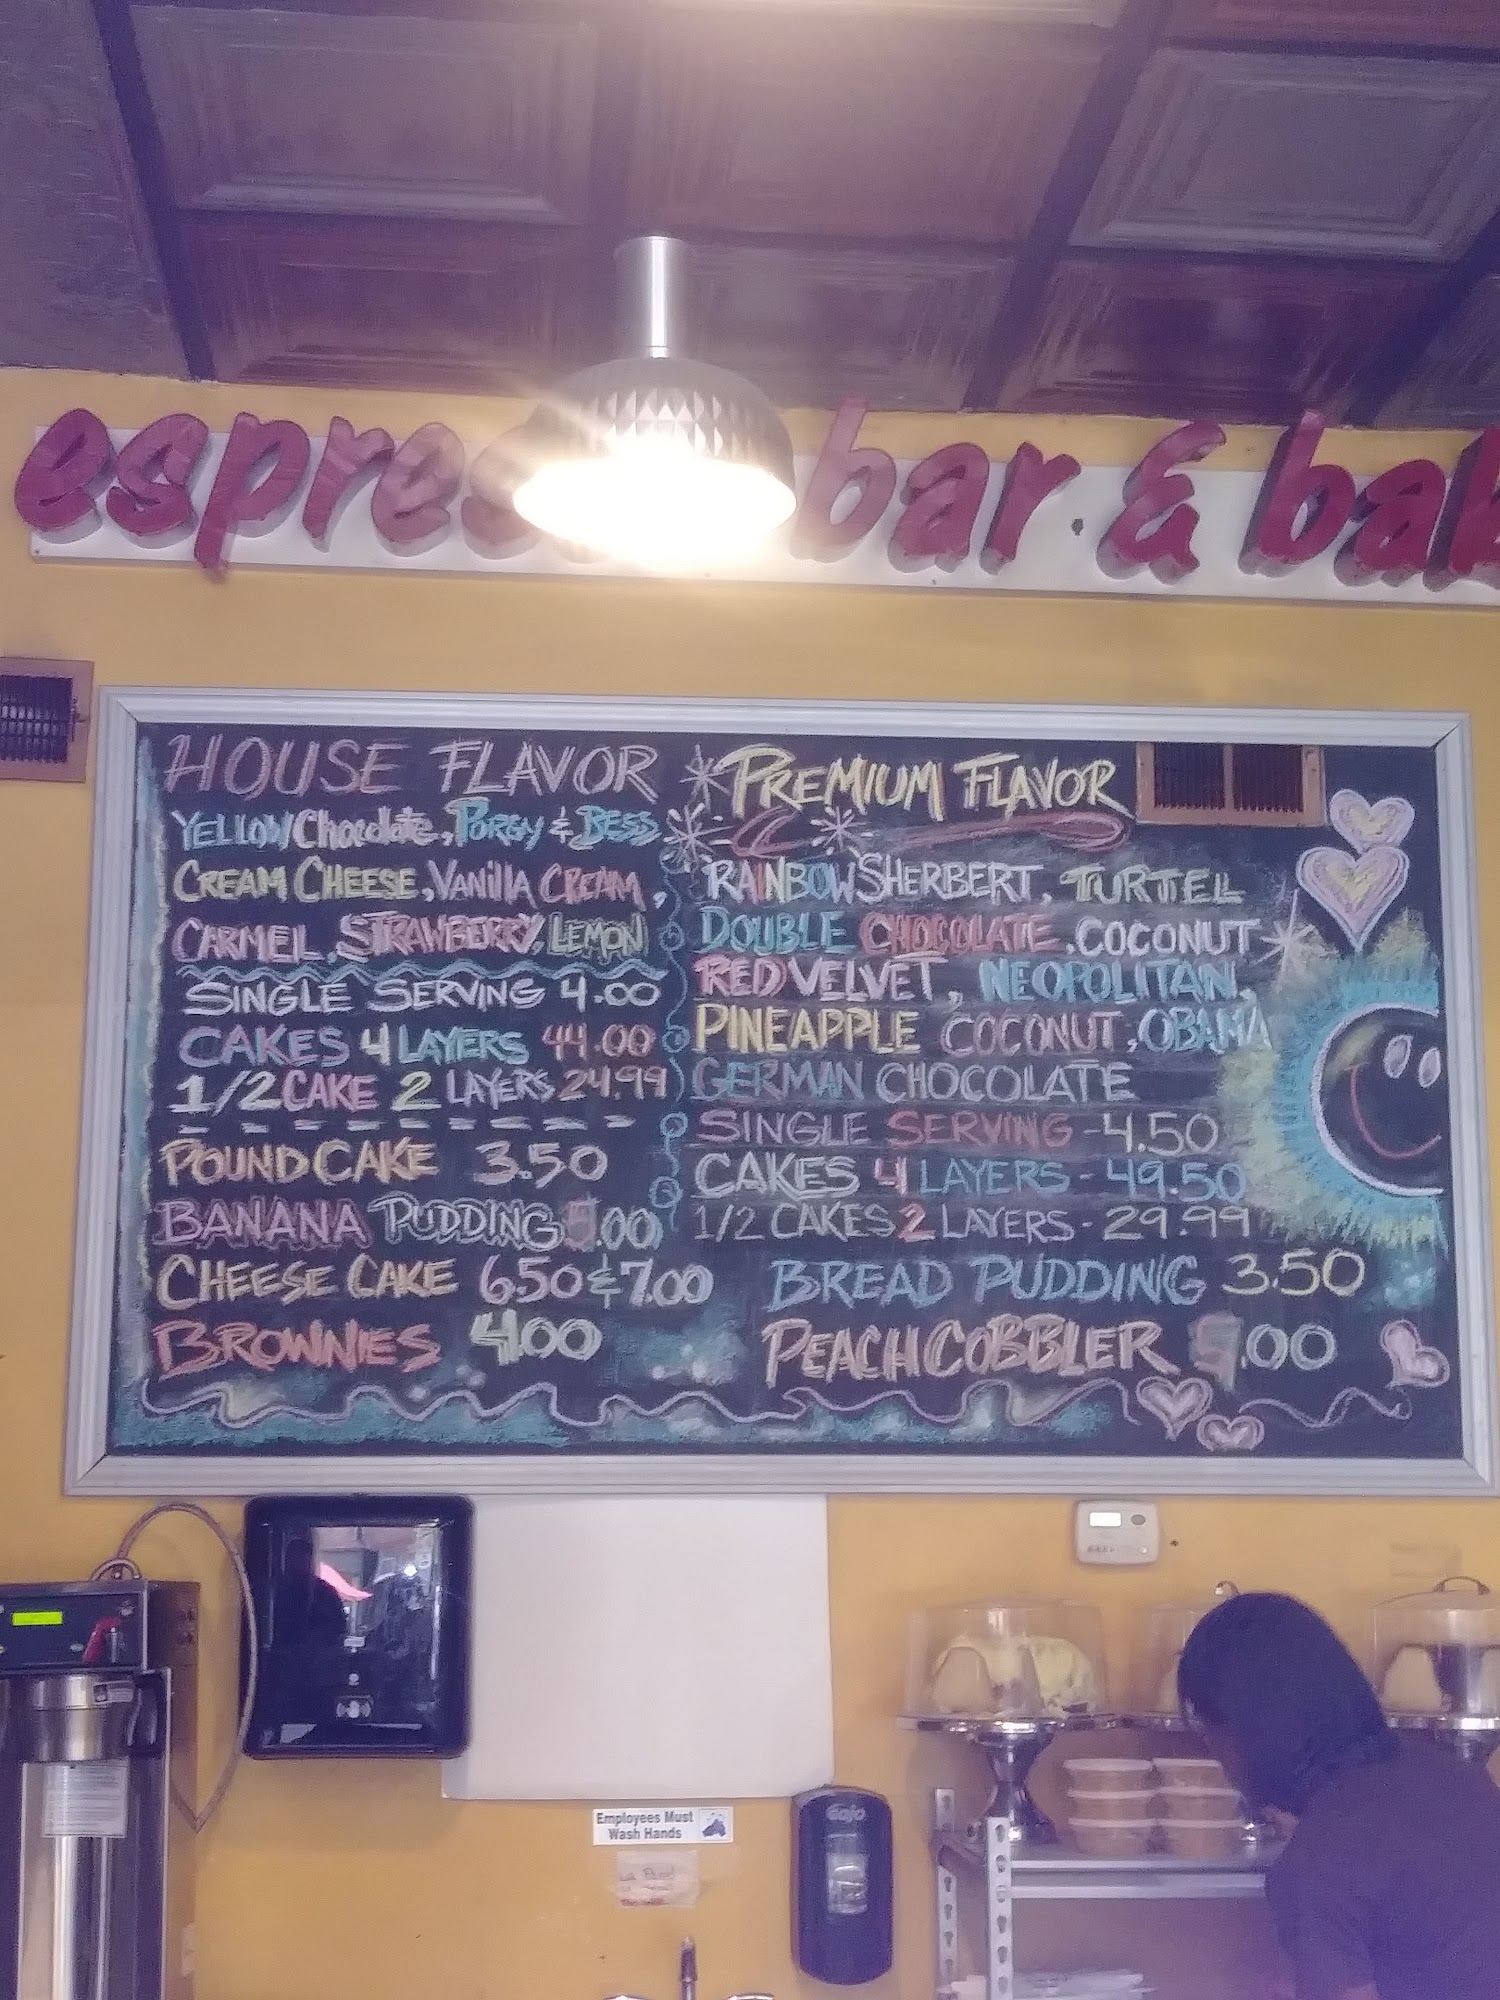 bar & bak
HOUSE FLAVOR
YELLOW Chocolate, PORGY & BESS
CREAM CHEESE, VANILLA CREAM,
CARMEL, STRAWBERRY, LEMON
SINGLE SERVING 4.00
CAKES 4 LAYERS 44.00
1/2 CAKE 2 LAYERS 24.99
POUND CAKE 3.50
BANANA PUDDING 5.00
CHEESE CAKE 6.50 & 7.00
BROWNIES 4.00
PREMIUM FLAVOR
RAINBOW SHERBERT, TURTELL
DOUBLE CHOCOLATE, COCONUT
RED VELVET, NEOPOLITAN,
PINEAPPLE COCONUT, OBAMA
GERMAN CHOCOLATE
SINGLE SERVING - 4.50
CAKES 4 LAYERS - 49.50
1/2 CAKES 2 LAYERS - 29.99
BREAD PUDDING 3.50
PEACH COBBLER 5.00
Employees Must
Wash Hands
GOJO